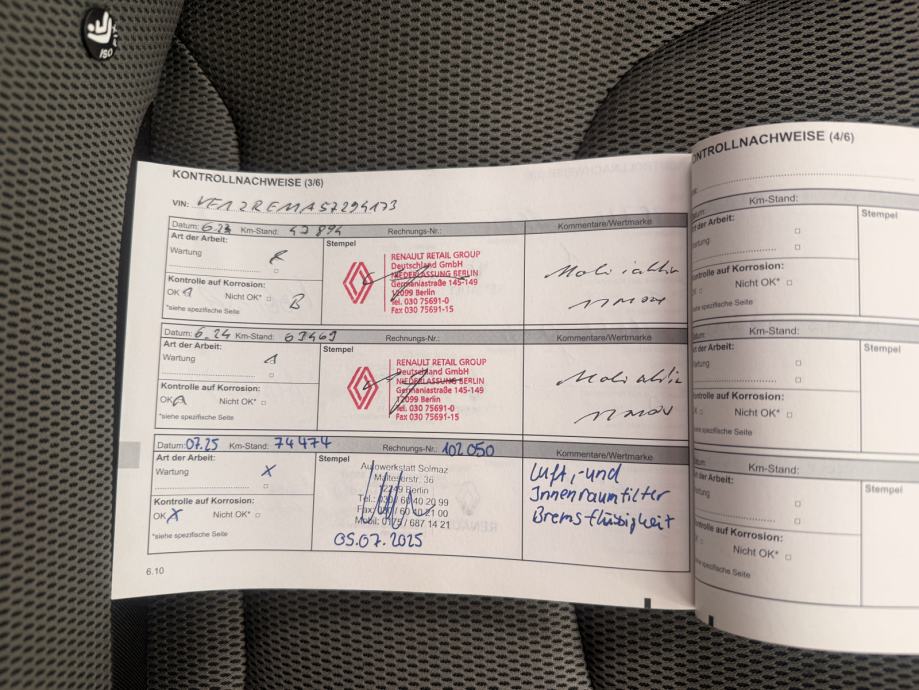 ISO
KONTROLLNACHWEISE (3/6)
VIN:
Datum: 6.23 Km-Stand: Rechnungs-Nr.: Kommentare/Wertmarke
Art der Arbeit:
Wartung
Kontrolle auf Korrosion:
OK Nicht OK*
*siehe spezifische Seite
Stempel
RENAULT RETAIL GROUP
Deutschland GmbH
NIEDERLASSUNG BERLIN
Germaniastraße 145-149
12099 Berlin
Tel. 030 75691-0
Fax 030 75691-15
Datum: 6.24 Km-Stand: Rechnungs-Nr.: Kommentare/Wertmarke
Art der Arbeit:
Wartung
Kontrolle auf Korrosion:
OK Nicht OK*
*siehe spezifische Seite
Stempel
RENAULT RETAIL GROUP
Deutschland GmbH
NIEDERLASSUNG BERLIN
Germaniastraße 145-149
12099 Berlin
Tel. 030 75691-0
Fax 030 75691-15
Datum: 07.25 Km-Stand: 74474 Rechnungs-Nr.: 102050 Kommentare/Wertmarke
Art der Arbeit:
Wartung X
Kontrolle auf Korrosion:
OK X Nicht OK*
*siehe spezifische Seite
Stempel
Autowerkstatt Solmaz
Malteserstr. 36
12249 Berlin
Tel.: 030 / 60 40 20 99
Mobil: 0175 / 687 14 21
05.07.2025
Luft,-und
Innenraumfilter
Bremsflüßigkeit
6.10
ONTROLLNACHWEISE (4/6)
Km-Stand:
Art der Arbeit:
Wartung
Kontrolle auf Korrosion:
Nicht OK*
spezifische Seite
Stempel
Km-Stand:
Art der Arbeit:
Wartung
Kontrolle auf Korrosion:
Nicht OK*
spezifische Seite
Stempel
Km-Stand:
Art der Arbeit:
Wartung
Kontrolle auf Korrosion:
Nicht OK*
spezifische Seite
Stempel